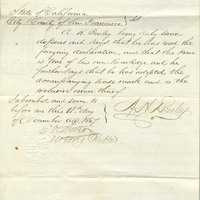 State of California
City & County of San Francisco } ss
A. N. being duly sworn
deposes and says that he has read the
foregoing declaration, and that the same
is true of his own knowledge and he
further says that he has adopted the
accompanying trade mark and is the
exclusive owner thereof
Subscribed and sworn to
before me this day A. N.
of December 1867
Notary Public